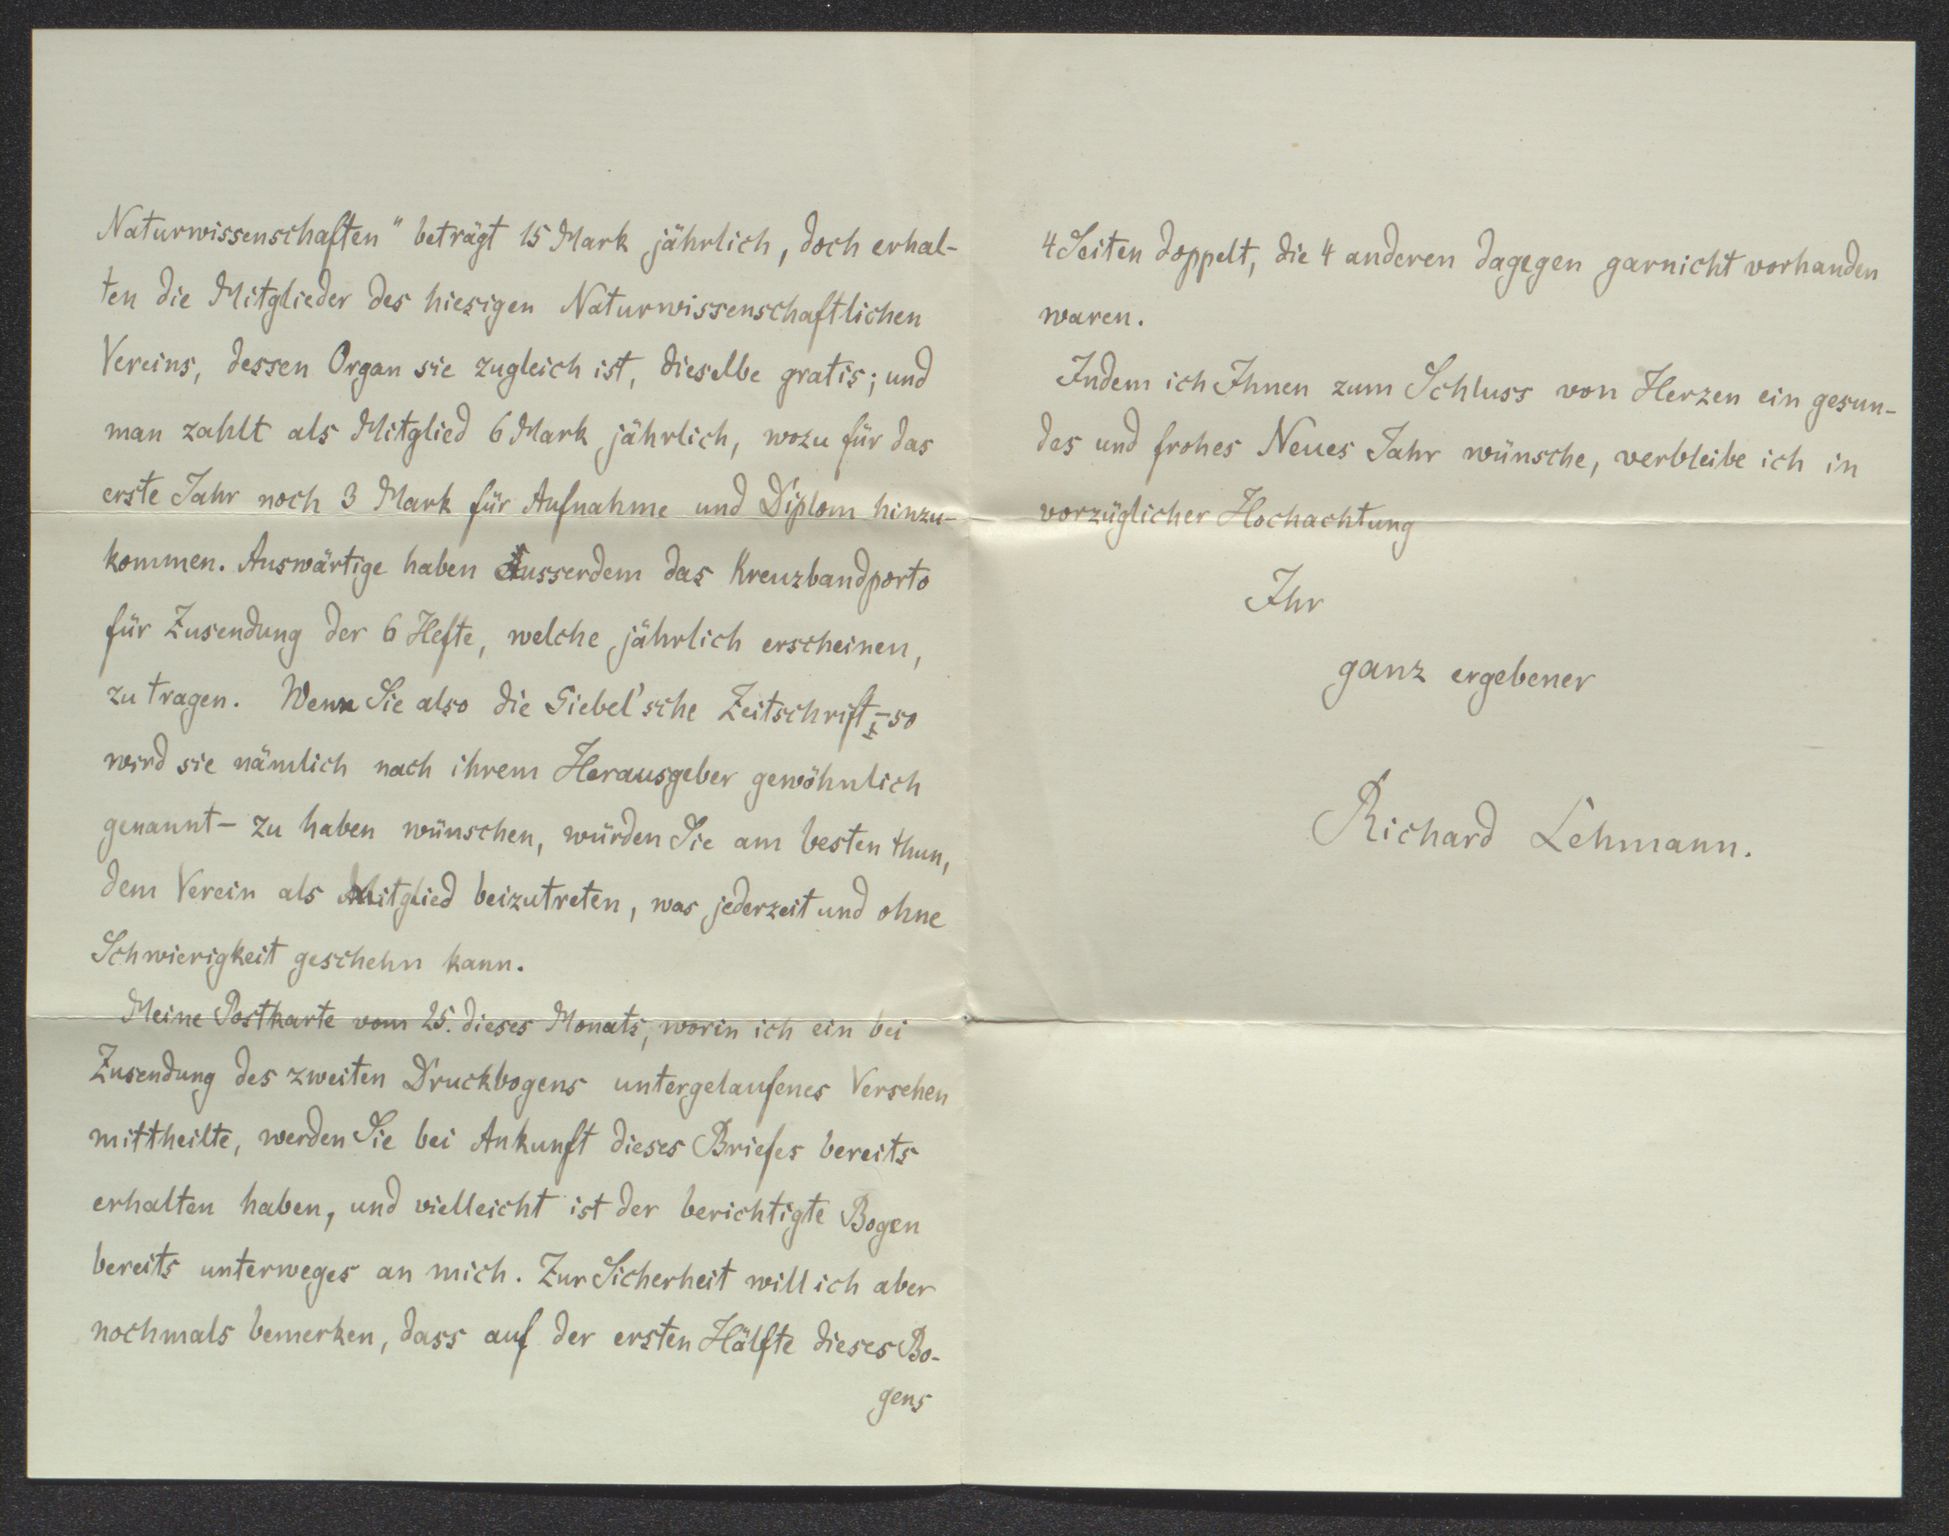 Naturwissenschaften" beträgt 15 Mark jährlich, doch erhal-
ten die Mitglieder des hiesigen Naturwissenschaftlichen
Vereins, dessen Organ sie zugleich ist, dieselbe gratis; und
man zahlt als Mitglied 6 Mark jährlich, wozu für das
erste Jahr noch 3 Mark für Aufnahme und Diplom hinzu-
kommen. Auswärtige haben ausserdem das Kreuzbandporto
für Zusendung der 6 Hefte, welche jährlich erscheinen,
zu tragen. Wenn Sie also die Giebel'sche Zeitschrift – so
wird sie nämlich nach ihrem Herausgeber gewöhnlich
genannt – zu haben wünschen, würden Sie am besten thun,
dem Verein als Mitglied beizutreten, was jederzeit und ohne
Schwierigkeit geschehn kann.
Meine Postkarte vom 25. dieses Monats, worin ich ein bei
Zusendung des zweiten Druckbogens untergelaufenes Versehen
mittheilte, werden Sie bei Ankunft dieses Briefes bereits
erhalten haben, und vielleicht ist der berichtigte Bogen
bereits unterweges an mich. Zur Sicherheit will ich aber
nochmals bemerken, dass auf der ersten Hälfte dieses Bo-
gens
4 Seiten doppelt, die 4 anderen dagegen garnicht vorhanden
waren.
Indem ich Ihnen zum Schluss von Herzen ein gesun-
des und frohes Neues Jahr wünsche, verbleibe ich in
vorzüglicher Hochachtung
Ihr
ganz ergebener
Richard Lehmann.